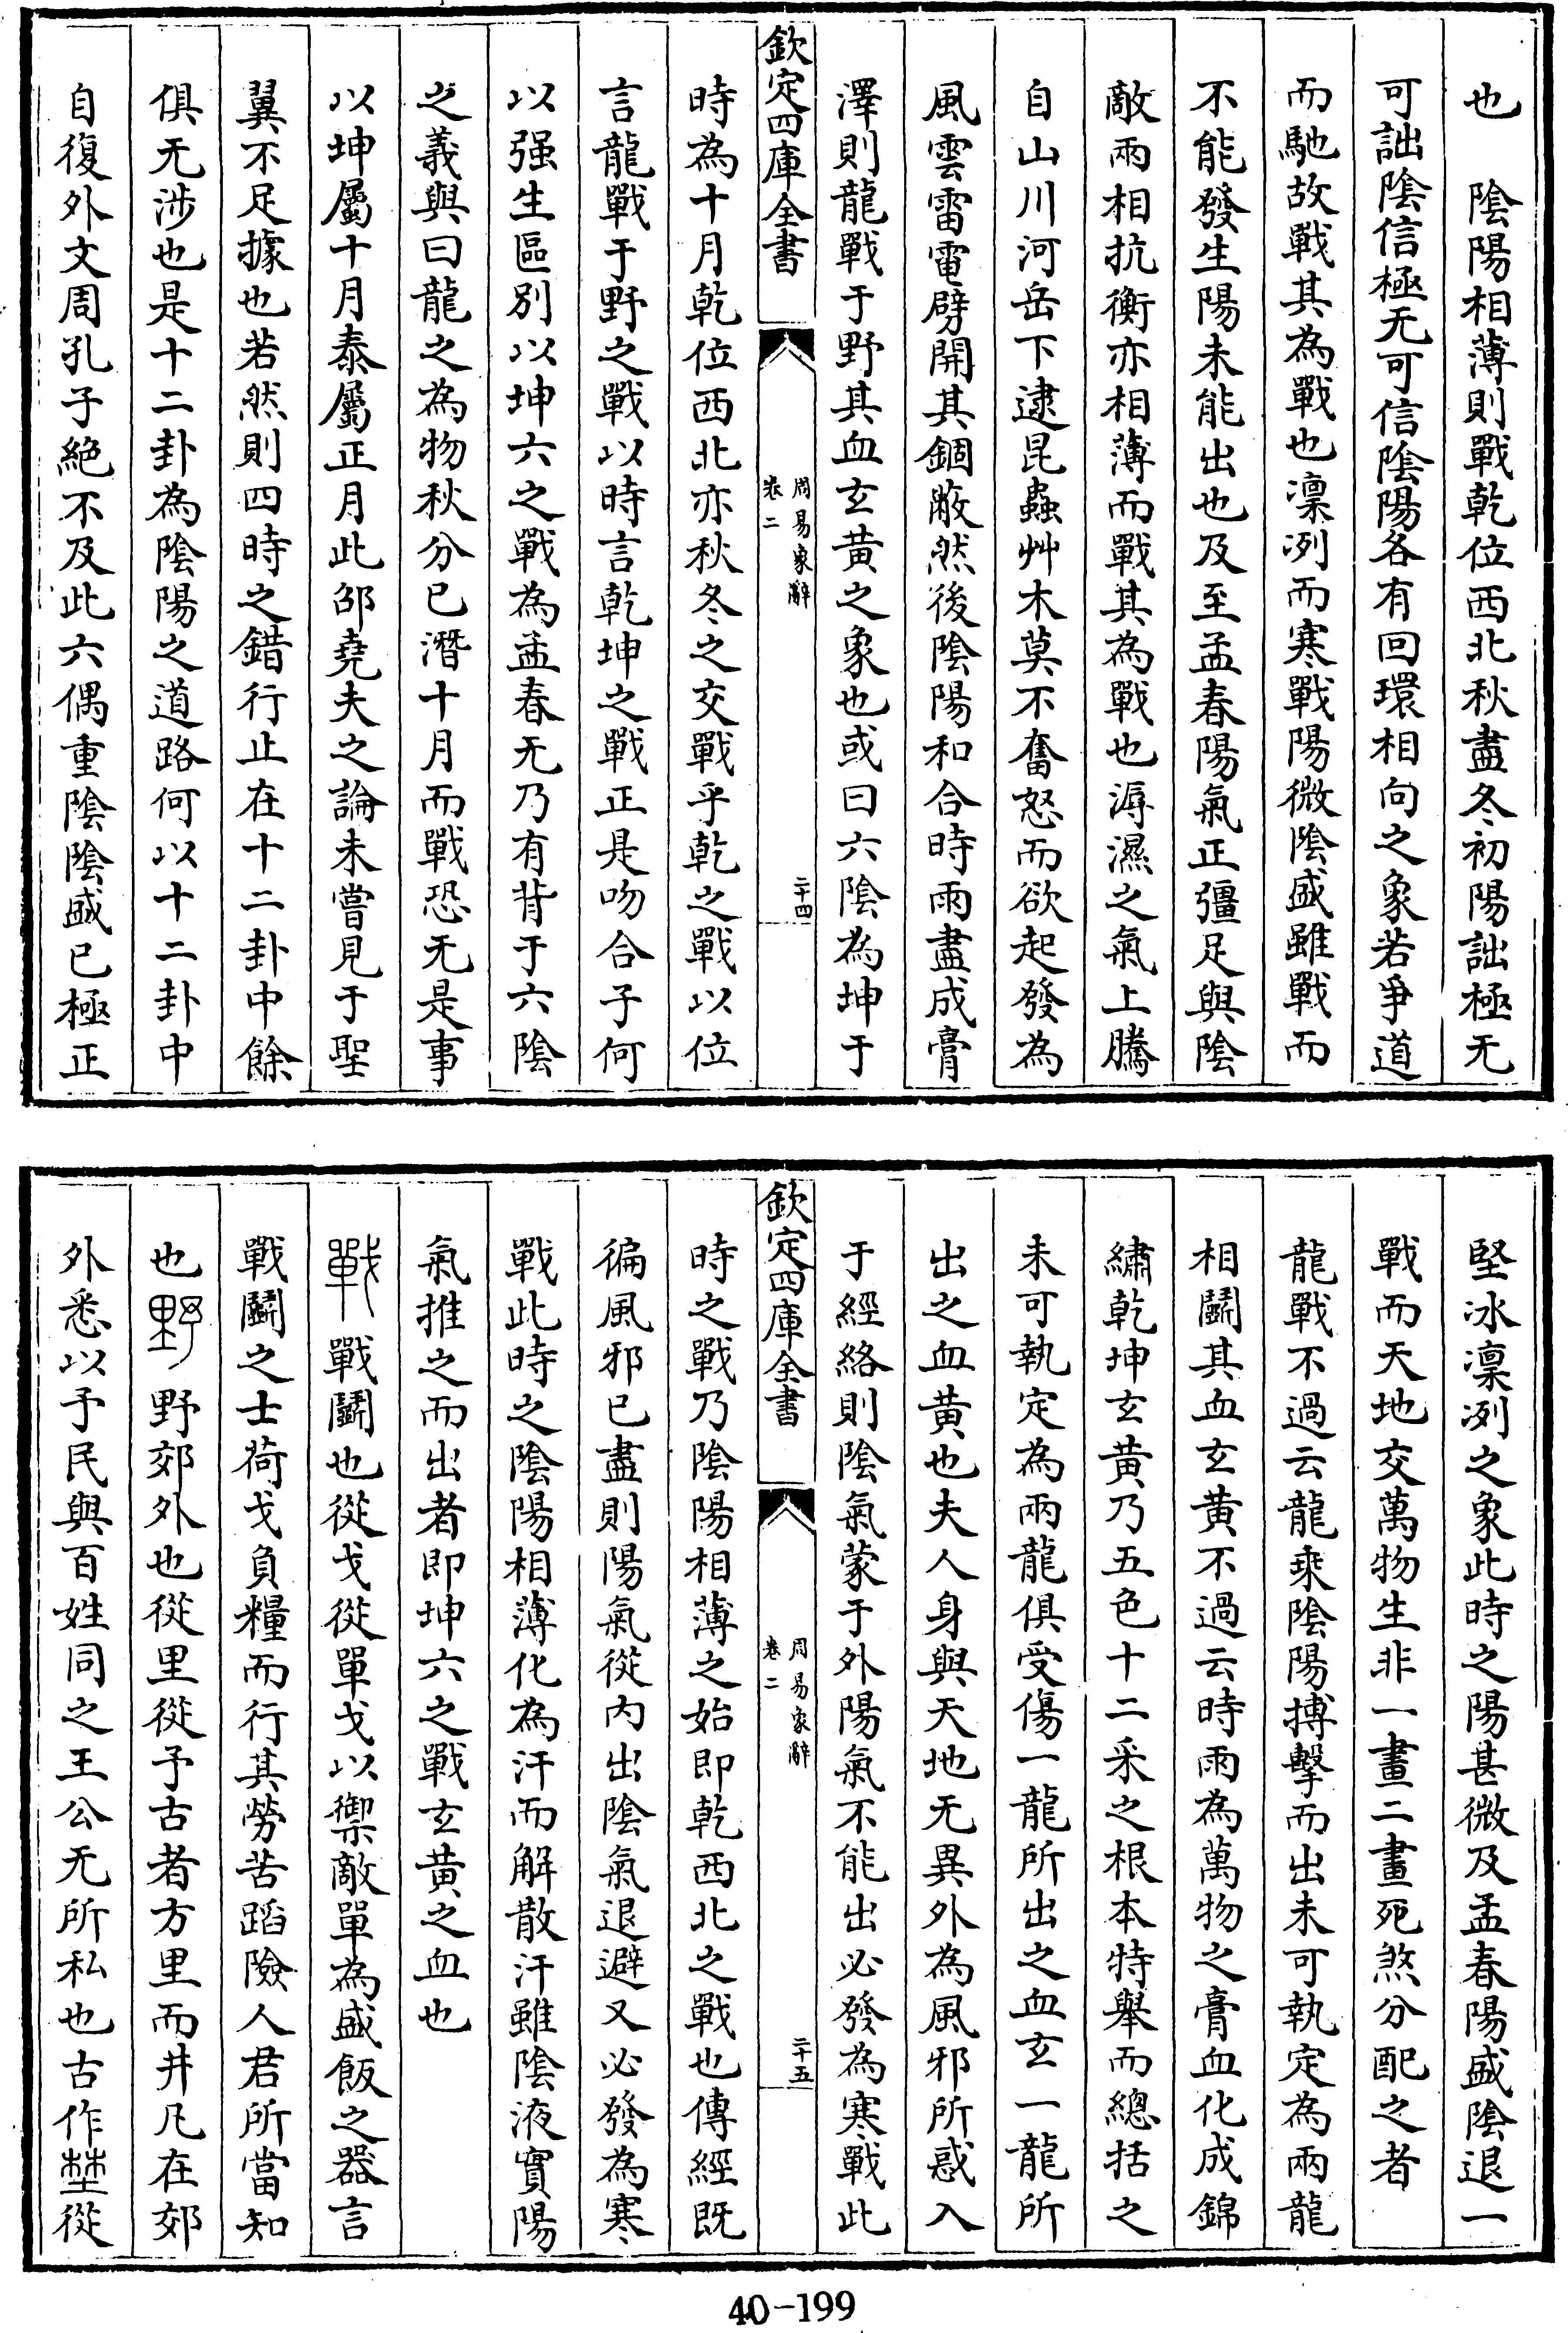 也　陰陽相薄則戰乾位西北秋盡冬初陽詘極无
可詘陰信極无可信陰陽各有回環相向之象若爭道
而馳故戰其為戰也凜冽而寒戰陽微陰盛雖戰而
不能發生陽未能出也及至孟春陽氣正彊足與陰
敵兩相抗衡亦相薄而戰其為戰也溽濕之氣上騰
自山川河岳下逮昆蟲艸木莫不奮怒而欲起發為
風雲雷電劈開其錮蔽然後陰陽和合時雨盡成膏
澤則龍戰于野其血玄黃之象也或曰六陰為坤于
欽定四庫全書
周易象辭
卷二
二十四
時為十月乾位西北亦秋冬之交戰乎乾之戰以位
言龍戰于野之戰以時言乾坤之戰正是吻合子何
以强生區別以坤六之戰為孟春无乃有背于六陰
之義與曰龍之為物秋分已潛十月而戰恐无是事
以坤屬十月泰屬正月此邵堯夫之論未嘗見于聖
翼不足據也若然則四時之錯行止在十二卦中餘
俱无涉也是十二卦為陰陽之道路何以十二卦中
自復外文周孔子絶不及此六偶重陰陰盛已極正
堅冰凜冽之象此時之陽甚微及孟春陽盛陰退一
戰而天地交萬物生非一畫二畫死煞分配之者
龍戰不過云龍乘陰陽搏擊而出未可執定為兩龍
相鬭其血玄黃不過云時雨為萬物之膏血化成錦
繡乾坤玄黃乃五色十二采之根本特舉而總括之
未可執定為兩龍俱受傷一龍所出之血玄一龍所
出之血黃也夫人身與天地无異外為風邪所惑入
于經絡則陰氣蒙于外陽氣不能出必發為寒戰此
欽定四庫全書
周易象辭
卷二
二十五
時之戰乃陰陽相薄之始即乾西北之戰也傳經既
徧風邪已盡則陽氣從內出陰氣退避又必發為寒
戰此時之陰陽相薄化為汗而解散汗雖陰液實陽
氣推之而出者即坤六之戰玄黃之血也
戰　戰鬭也從戈從單戈以禦敵單為盛飯之器言
戰鬭之士荷戈負糧而行其勞苦蹈險人君所當知
也野　野郊外也從里從予古者方里而井凡在郊
外悉以予民與百姓同之王公无所私也古作埜從
40-199